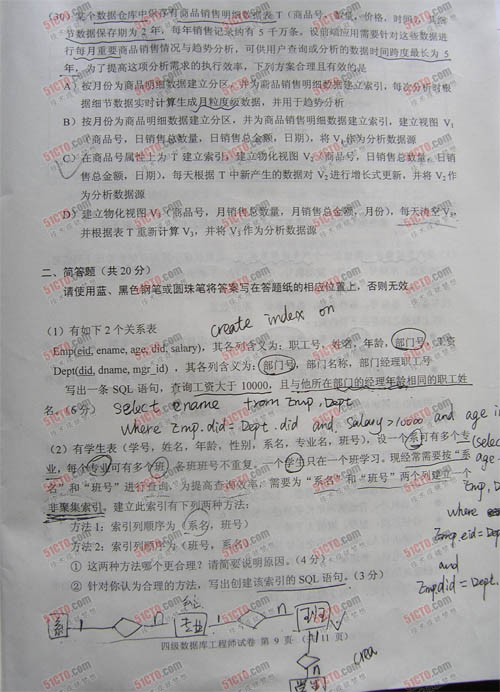 (30) 某个数据仓库中保存有商品销售明细数据表 T(商品号,数量,价格,时间),其细
节数据保存期为 2 年,每年销售记录约有 5 千万条。设前端应用需要针对这些数据进
行每月重要商品销售情况与趋势分析,可供用户查询或分析的数据时间跨度最长为 5
年。为了提高这项分析需求的执行效率,下列方案合理且有效的是
A)按月份为商品明细数据建立分区,并为商品销售明细数据建立索引,每次分析时根
据细节数据实时计算生成月粒度级数据,并用于趋势分析
B)按月份为商品明细数据建立分区,并为商品销售明细数据建立索引,建立视图 V1
(商品号,日销售总数量,日销售总金额,日期),将 V1作为分析数据源
C)在商品号属性上为 T 建立索引,建立物化视图 V2(商品号,日销售总数量,日销
售总金额,日期),每天根据 T 中新产生的数据对 V2进行增长式更新,并将 V2作
为分析数据源
D)建立物化视图 V3(商品号,月销售总数量,月销售总金额,月份),每天清空 V3,
并根据表 T 重新计算 V3,并将 V3作为分析数据源
二、简答题(共 20 分)
请使用蓝、黑色钢笔或圆珠笔将答案写在答题纸的相应位置上,否则无效。
create index on
(1)有如下 2 个关系表
Emp(eid, ename, age, did, salary),其各列含义为:职工号,姓名,年龄,部门号,工资
Dept(did, dname, mgr_id) ,其各列含义为:部门号,部门名称,部门经理职工号
写出一条 SQL 语句,查询工资大于 10000,且与他所在部门的经理年龄相同的职工姓
名。(6 分)
select ename from Emp, Dept
where Emp.did = Dept.did and salary > 10000 and age in
(selec
age
Emp, D
where
Emp.eid = Dep
and
Emp.did = Dept.
(2)有学生表(学号,姓名,年龄,性别,系名,专业名,班号),设一个系可有多个专
业,每个专业可有多个班,各班班号不重复,一个学生只在一个班学习。现经常需要按“系
名”和“班号”进行查询,为提高查询效率,需要为“系名”和“班号”两个列建立一个
非聚集索引,建立此索引有下列两种方法:
方法 1:索引列顺序为(系名,班号)
方法 2:索引列顺序为(班号,系名)
① 这两种方法哪个更合理?请简要说明原因。(4 分)
② 针对你认为合理的方法,写出创建该索引的 SQL 语句。(3 分)
系 1 n 专业 1 n 班
1
n
学生
crea
四级数据库工程师试卷 第 9 页 (共 11 页)
51CTO.com
技术成就梦想